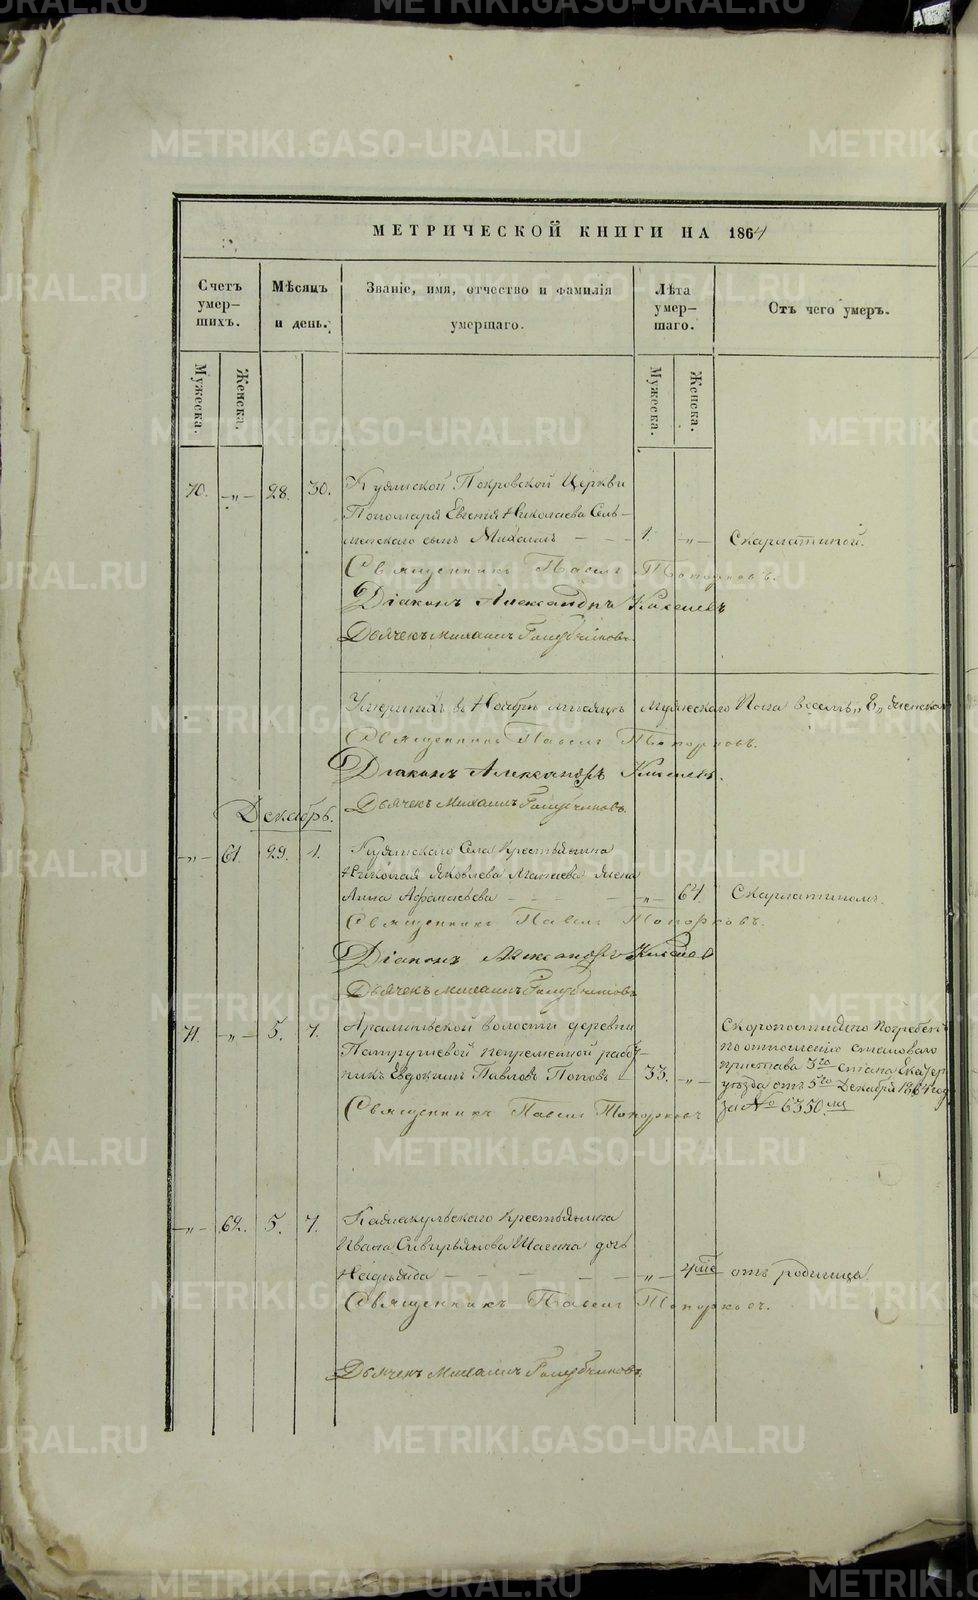 МЕТРИЧЕСКОЙ КНИГИ НА 1864
Счетъ умер-шихъ.
Мѣсяцъ и день.
Званіе, имя, отчество и фамилія умершаго.
Лѣта умер-шаго.
Отъ чего умеръ.
Мужеска.
Женска.
Мужеска.
Женска.
70. -„- 28. 30. Покровской Церкви
Пономаря Евгенія Николаева
сынъ Михаилъ - - - 1. -„- Скарлатиной.
Священникъ Павелъ Топорковъ.
Діаконъ Александръ Киселевъ
Дьячекъ Михаилъ Голубчиковъ.
Умершихъ въ Ноябрѣ мѣсяцѣ мужескаго пола восемь „8„ женска
Священникъ Павелъ Топорковъ.
Діаконъ Александръ Киселевъ.
Дьячекъ Михаилъ Голубчиковъ.
Декабрь.
-„- 61. 29. 1. Села Крестьянина
Николая Яковлева жена
Анна Афанасьева - - - -„- 64. Скарлатиномъ.
Священникъ Павелъ Топорковъ.
Діаконъ Александръ Киселев
Дьячекъ Михаилъ Голубчиковъ
71. -„- 5. 7. Арамильской волости деревни
Патрушевой непременной рабо-
никъ Евдокимъ Павловъ Поповъ - 33. -„-
Скоропостижно погребенъ
по отношенію становаго
пристава 3го стана Екатер
уѣзда отъ 5го Декабря 1864 год
за № 6350.мъ
Священникъ Павелъ Топорковъ
-„- 62. 5. 7. Крестьянина
Ивана дочь
Надежда - - - - -„- отъ родимца
Священникъ Павелъ Топорковъ.
Дьячекъ Михаилъ Голубчиковъ.
METRIKI.GASO-URAL.RU